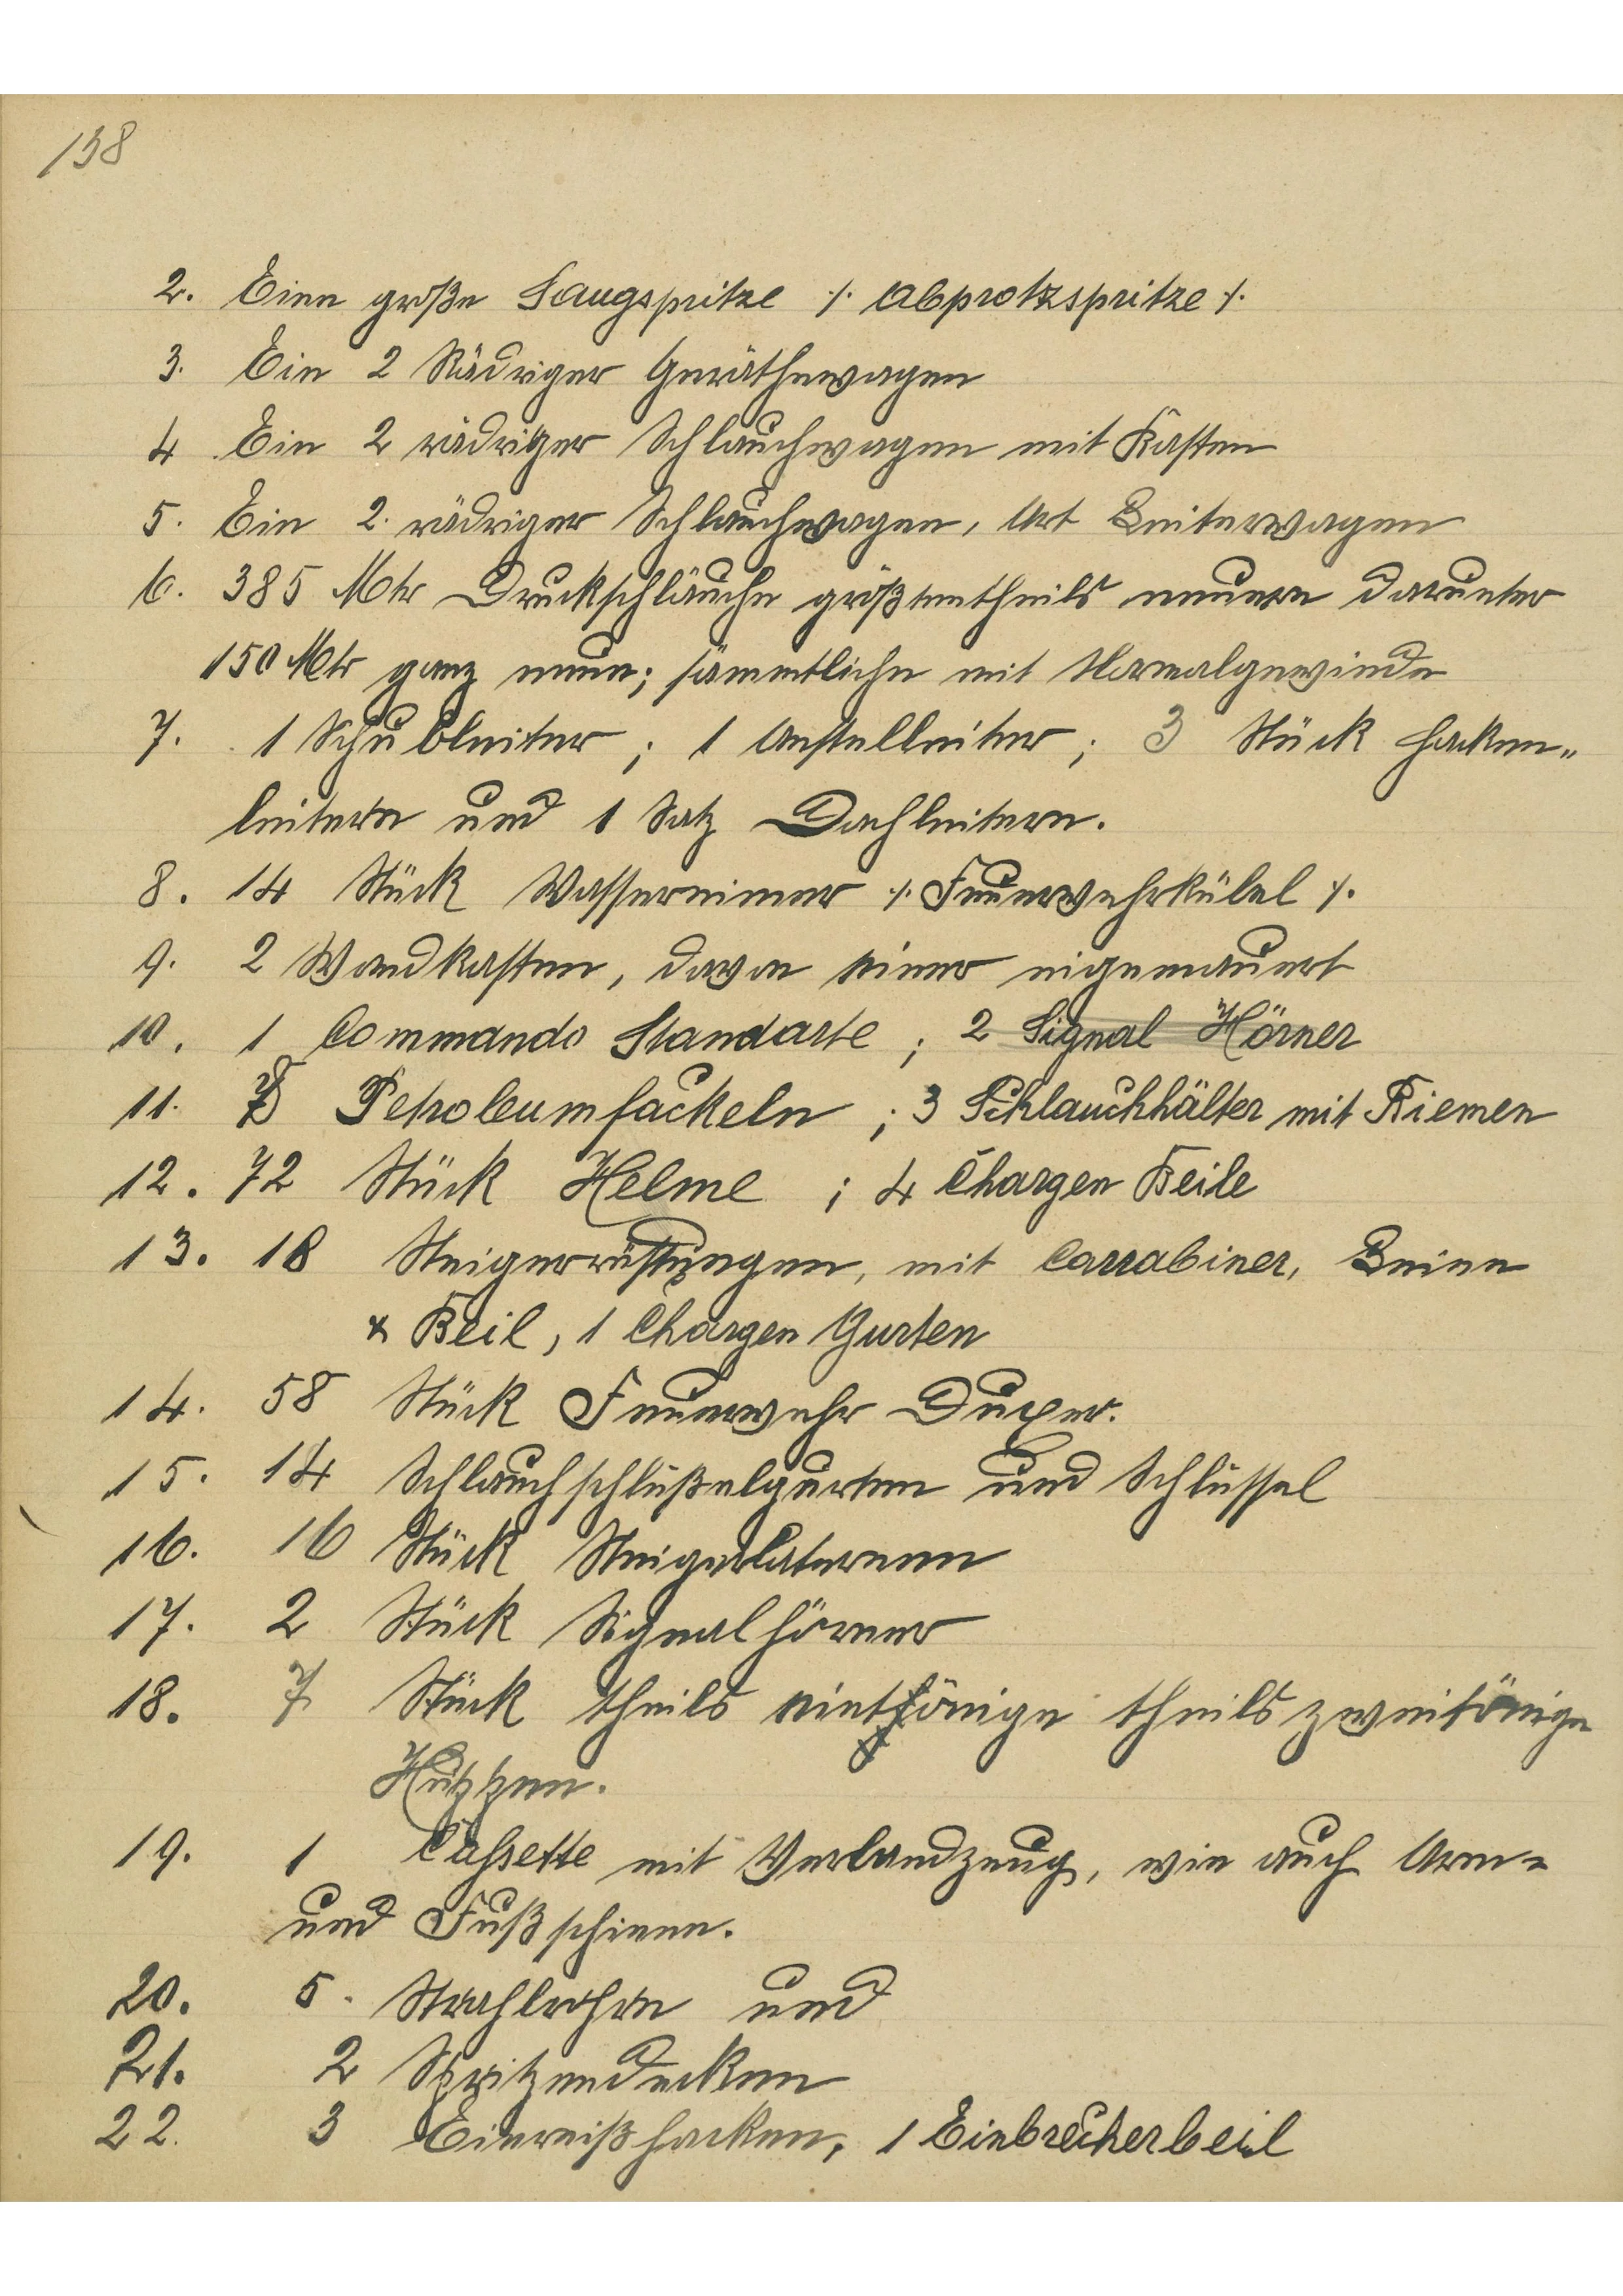 138
2. Eine große Saugspritze ⁒ Abprotzspritze ⁒
3. Ein 2 Rädriger Geräthewagen
4 Ein 2 rädriger Schlauchwagen mit Kasten
5. Ein 2. rädriger Schlauchwagen, Art Leiterwagen
6. 385 Mtr Druckschläuche größtentheils neuere darunter
150 Mtr ganz neue; sämmtliche mit Normalgewinde
7. 1 Schubleiter; 1 Anstelleiter; 3 Stück Hacken„
leitern und 1 Satz Dachleitern.
8. 14 Stück Wassereimer ⁒ Feuerwehrkübel ⁒
9. 2 Wandkasten, davon einer eigemauert
10. 1 Commando Standarte ; 2 Signal Hörner
11. Petroleumfackeln ; 3 Schlauchhälter mit Riemen
12. 72 Stück Helme ; 4 Chargen Beile
13. 18 Steigerrüstungen, mit Carrabiner, Leine
& Beil, 1 Chargen Gurten
14. 58 Stück Feuerwehr Duxer.
15. 14 Schlauchschlüßelgurten und Schlüssel
16. 16 Stück Steigerlaternen
17. 2 Stück Signalhörner
18. 7 Stück theils eintönige theils zweitönige
Huppen.
19. 1 Cassette mit Verbandzeug, wie auch Arm-
und Fußschienn.
20. 5. Strahlrohre und
21. 2 Spritzendecken
22. 3 Einreißhacken, 1 Einbrecherbeil